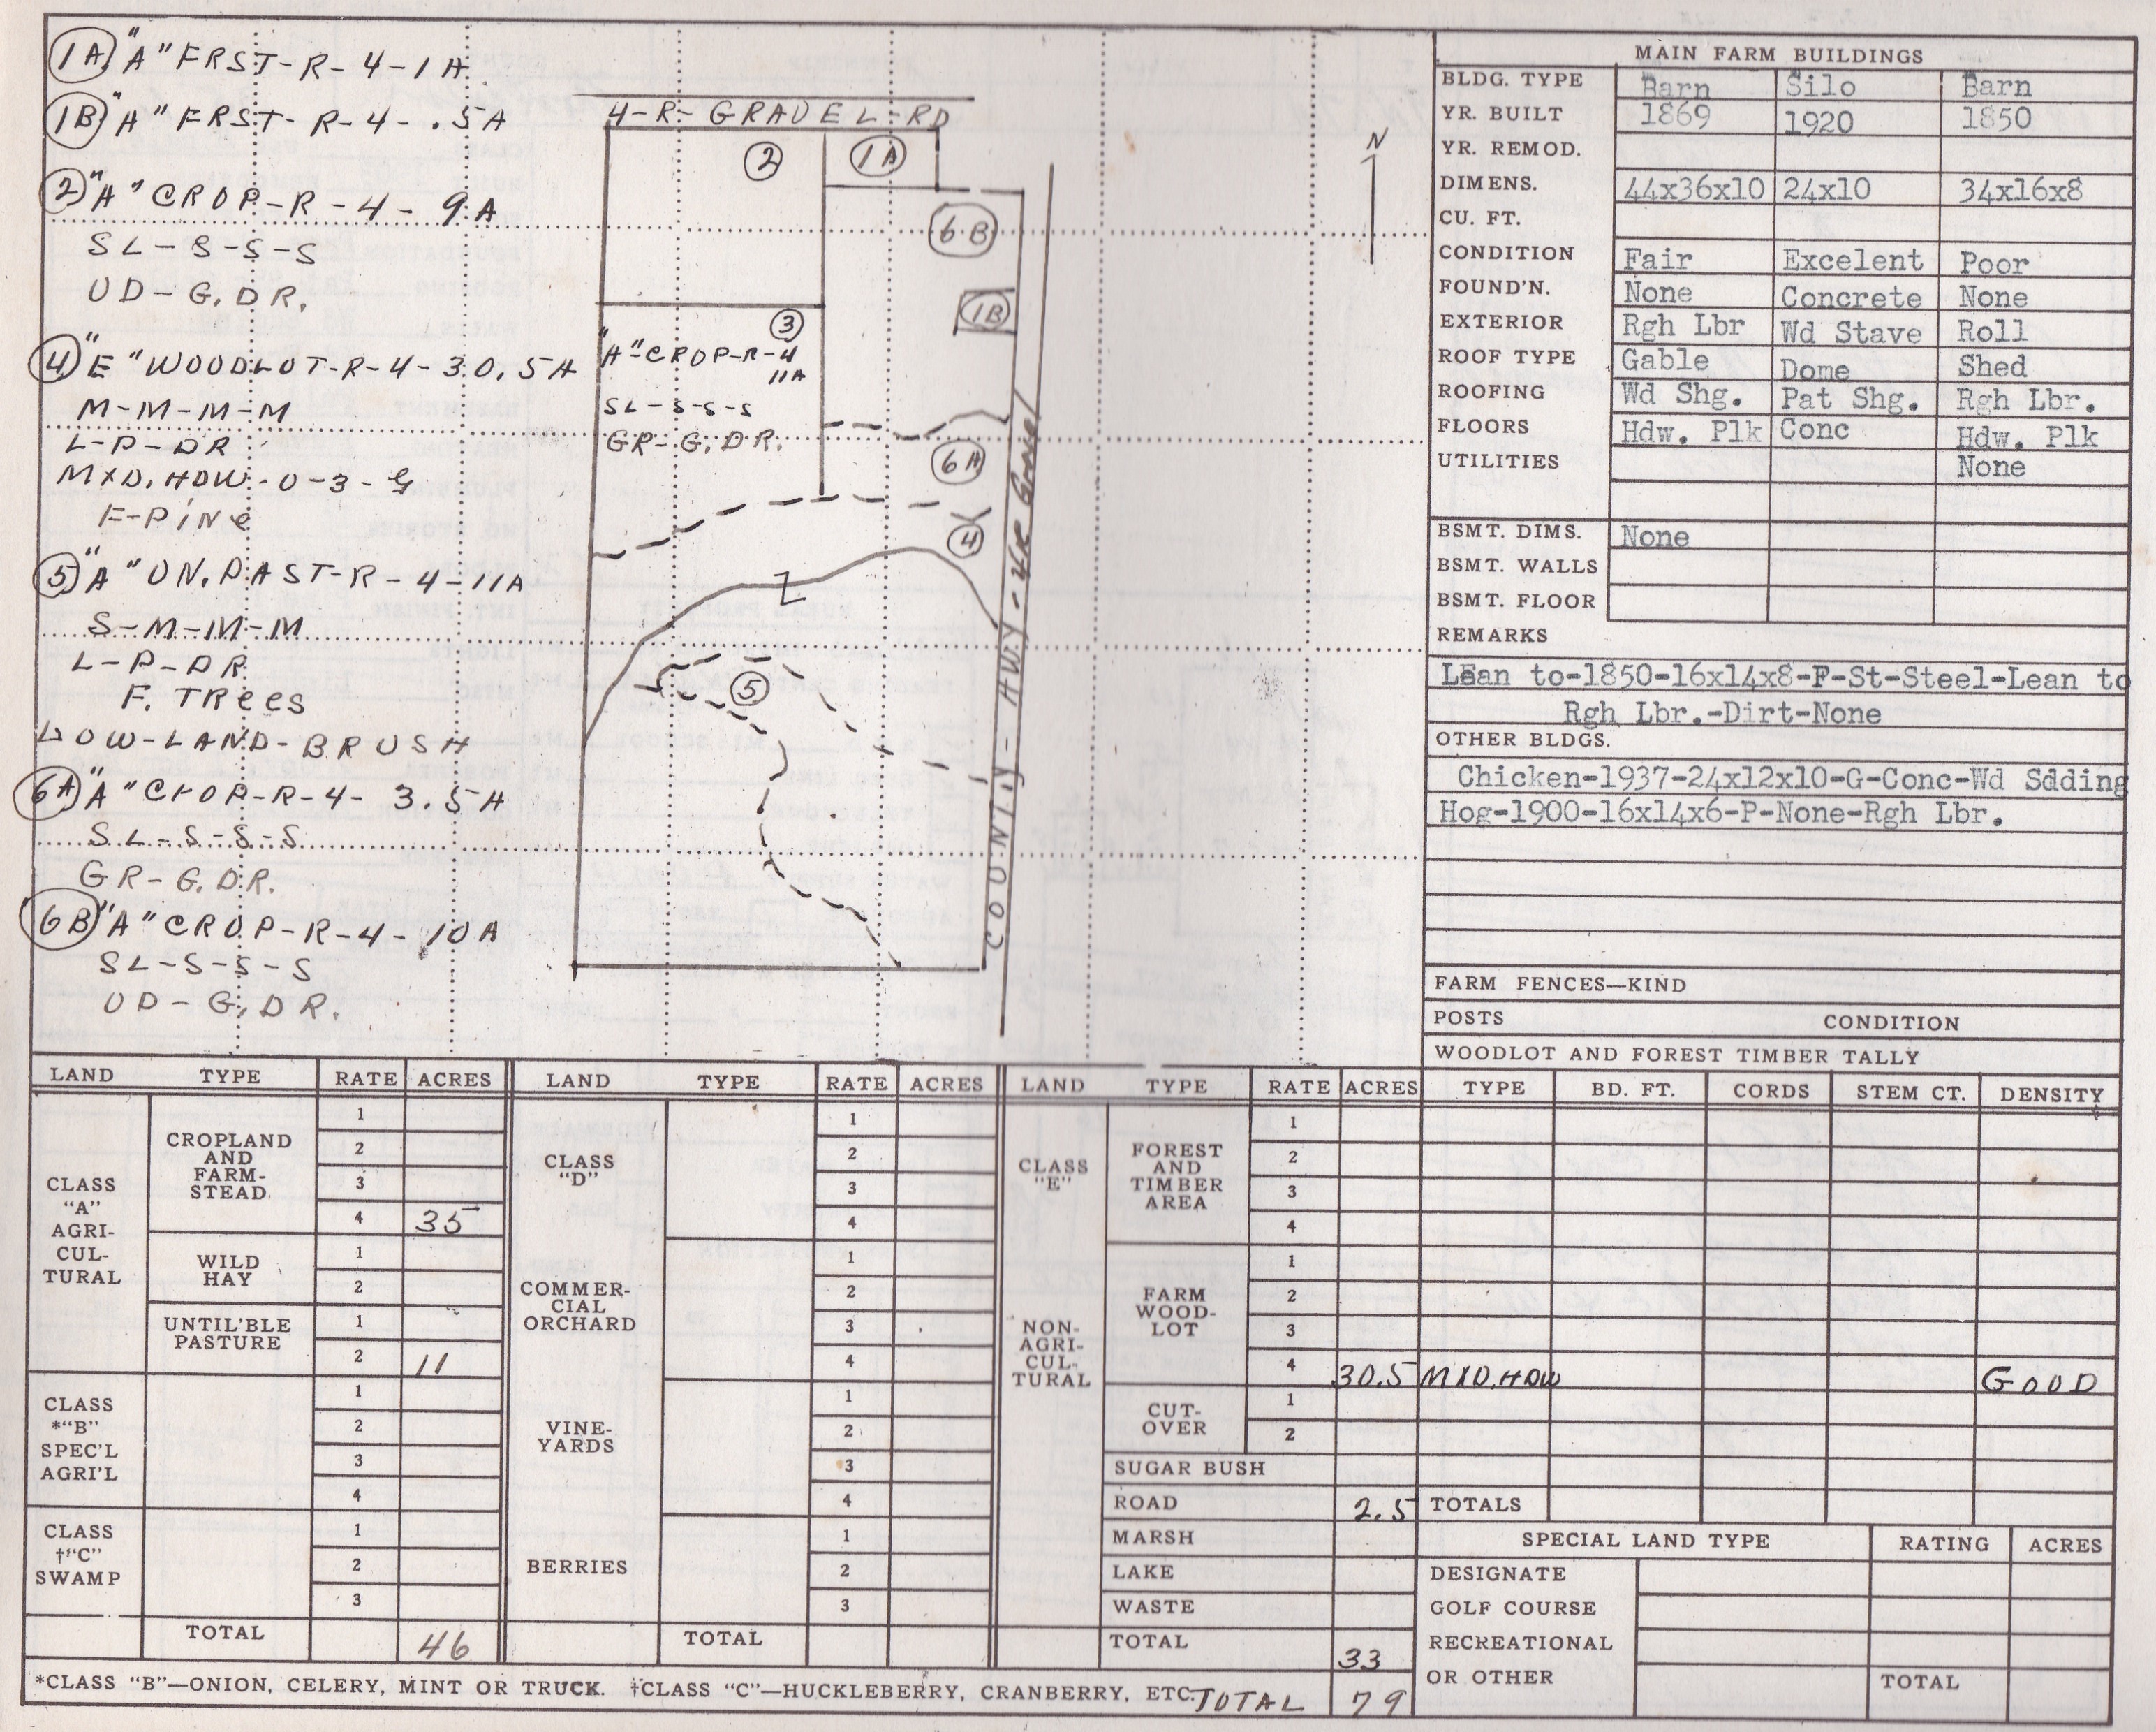 1A "A" FRST-R-4-1A
1B "A" FRST-R-4-.5A
2 "A" CROP-R-4-9A
SL-S-S-S
UD-G,DR.
4 "E" WOODLOT-R-4-30.5A
M-M-M-M
L-P-DR
MXD.HDW.-U-3-G
F-PINe
5 "A" UN.PAST-R-4-11A
S-M-M-M
L-P-DR
F. TRees
LOW-LAND-BRUSH
6A "A" CROP-R-4-3.5A
SL-S-S-S
GR-G,DR.
6B "A" CROP-R-4-10A
SL-S-S-S
UD-G,DR.
4-R-GRAVEL-RD
2
1A
6B
1B
3
"A"CROP-R-4
11A
SL-S-S-S
GR-G,DR.
6A
4
5
N
COUNTY-HWY-4R Gravel
MAIN FARM BUILDINGS
BLDG. TYPE Barn Silo Barn
YR. BUILT 1869 1920 1850
YR. REMOD.
DIMENS. 44x36x10 24x10 34x16x8
CU. FT.
CONDITION Fair Excelent Poor
FOUND'N. None Concrete None
EXTERIOR Rgh Lbr Wd Stave Roll
ROOF TYPE Gable Dome Shed
ROOFING Wd Shg. Pat Shg. Rgh Lbr.
FLOORS Hdw. Plk Conc Hdw. Plk
UTILITIES None
BSMT. DIMS. None
BSMT. WALLS
BSMT. FLOOR
REMARKS
Lean to-1850-16x14x8-F-St-Steel-Lean to
Rgh Lbr.-Dirt-None
OTHER BLDGS.
Chicken-1937-24x12x10-G-Conc-Wd Sdding
Hog-1900-16x14x6-P-None-Rgh Lbr.
FARM FENCES—KIND
POSTS CONDITION
WOODLOT AND FOREST TIMBER TALLY
LAND TYPE RATE ACRES LAND TYPE RATE ACRES LAND TYPE RATE ACRES TYPE BD. FT. CORDS STEM CT. DENSITY
CLASS
"A"
AGRI-
CUL-
TURAL
CROPLAND
AND
FARM-
STEAD.
1
2
3
4 35
WILD
HAY
1
2
UNTIL'BLE
PASTURE
1
2 11
CLASS
*"B"
SPEC'L
AGRI'L
1
2
3
4
CLASS
†"C"
SWAMP
1
2
3
TOTAL 46
CLASS
"D"
1
2
3
4
COMMER-
CIAL
ORCHARD
1
2
3
4
VINE-
YARDS
1
2
3
4
BERRIES
1
2
3
TOTAL
CLASS
"E"
NON-
AGRI-
CUL-
TURAL
FOREST
AND
TIMBER
AREA
1
2
3
4
FARM
WOOD-
LOT
1
2
3
4 30.5 MXD.HDW GOOD
CUT-
OVER
1
2
SUGAR BUSH
ROAD 2.5 TOTALS
MARSH
LAKE
WASTE
TOTAL 33
SPECIAL LAND TYPE RATING ACRES
DESIGNATE
GOLF COURSE
RECREATIONAL
OR OTHER TOTAL
*CLASS "B"—ONION, CELERY, MINT OR TRUCK. †CLASS "C"—HUCKLEBERRY, CRANBERRY, ETC. TOTAL 79